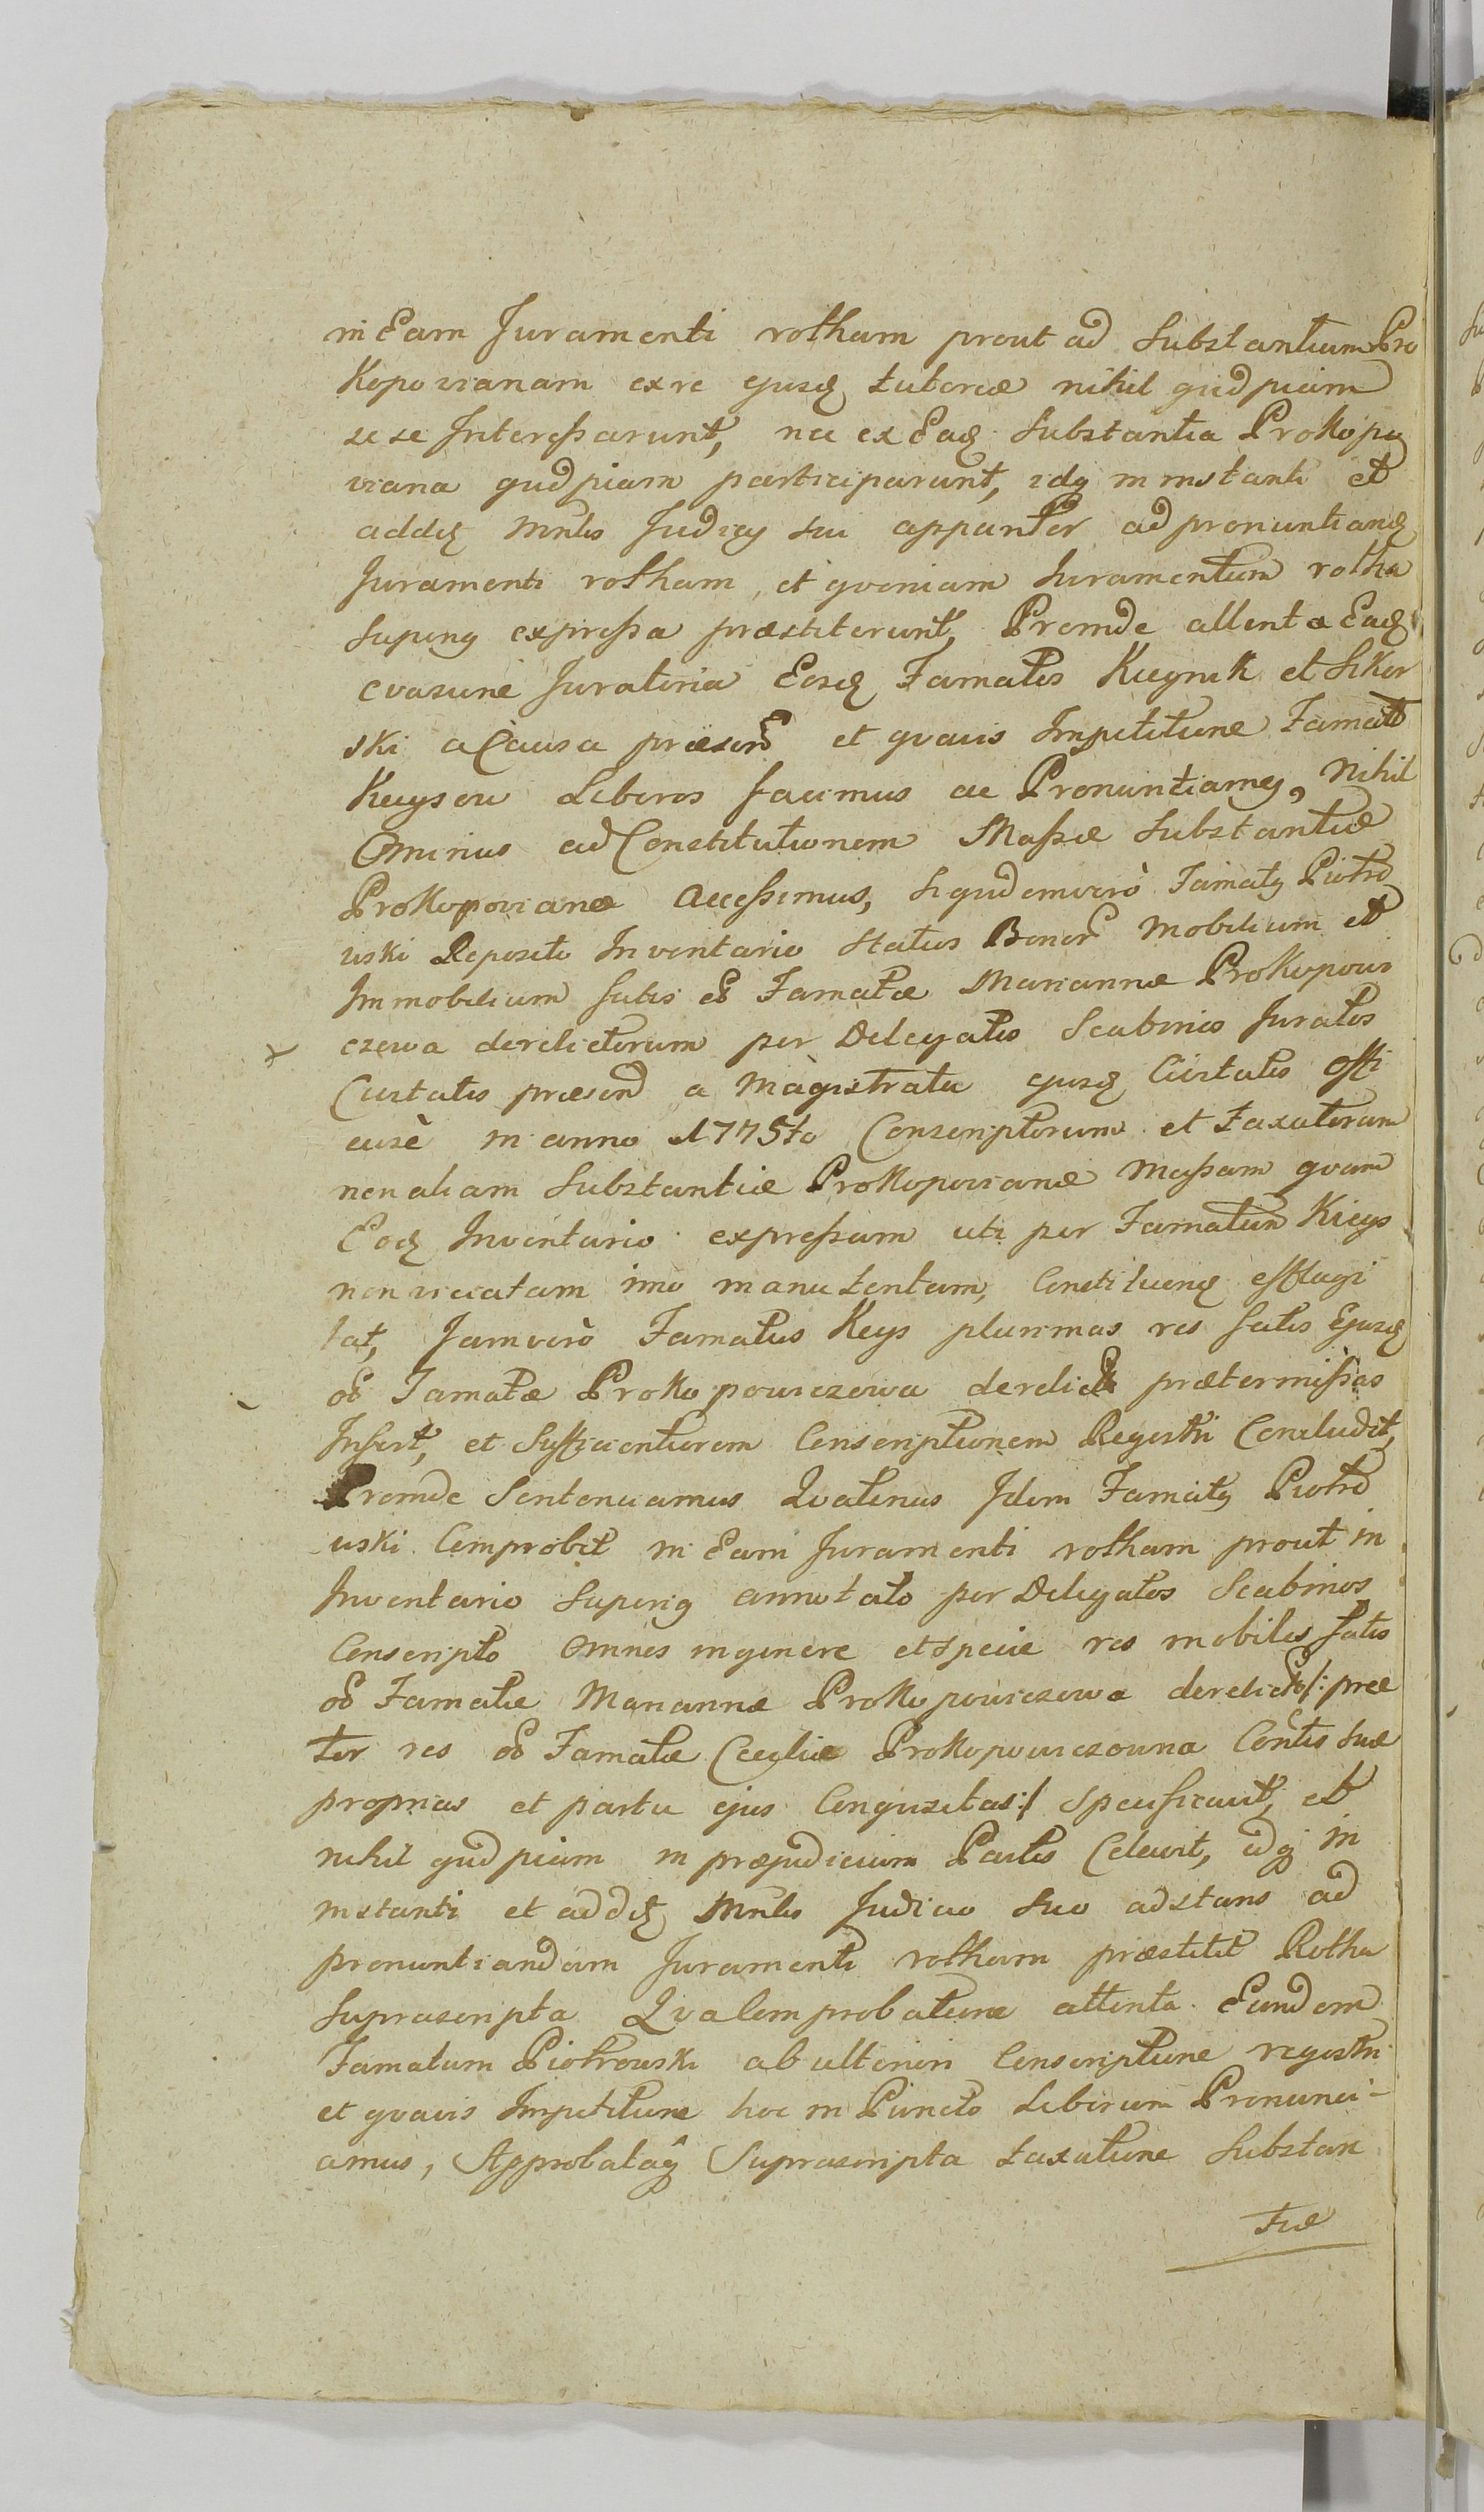 in Eam Juramenti rotham prout ad Substantiam Pro
kopovianam ex re ejusq tutoriæ nihil quidpiam
se se Interessarunt, nec ex Eaq Substantia Prokopo
viana quidpiam participarunt, idq in instanti et
addq Mntis Judicy sui appunter ad pronuntianq
Juramenti rotham, et qvoniam Juramentum rotha
superiq expressa præstiterunt, Proinde attenta Eaq
evasione Juratoria Eosq Famatos Kieynik et Sikor
ski a Causa præsend et qvavis Impetitione Famati
Kieysow Liberos facimus ac Pronuntiamq, Nihil
Ominus ad Constitutionem Massæ Substantiæ
Prokopovianæ Accessimus, Siqvidemverò Famatq Piotro
wski Reposito Inventario Status Bonor Mobilium et
Immobilium fatis ol Famatæ Mariannæ Prokopowi
czowa derelictorum per Delegatos Scabinos Juratos
Civitatis præsend a Magistratu ejusq Civitatis offi
ciosè in anno 1775to Conscriptorum et taxatorum
non aliam Substantiæ Prokopovianæ Massam qvam
Eoq Inventario expressam uti per Famatum Kieys
non viciatam imo manutentam, Constituenq efflagi
tat, Jamverò Famatus Keys plurimas res fatis Ejusq
ol Famatæ Prokopowiczowa derelict prætermissas
Infert, et Sufficientiorem Conscriptionem Regestri Concludit,
Proinde Sentenciamus Qvatenus Idem Famatq Piotro
wski Comprobet in Eam Juramenti rotham prout in
Inventario Superiq annotato per Delegatos Scabinos
Conscripto Omnes in genere et specie res mobiles fatis
ol Famatæ Mariannæ Prokopowiczowa derelictas /: præ
ter res ol Famatæ Cecyliæ Prokopowiczowna Contis suæ
proprias et partu ejus Conqvisitas :/ Specificavit, et
nihil quidpiam in præjudicium Partis Celavit, idq in
instanti et addq Mntis Judicio Suo adstans ad
pronuntiandam Juramenti rotham præstitit Rotha
Suprascripta Qvalemprobatione attenta Eundem
Famatum Piotrowski ab ulteriori Conscriptione regestri
et qvavis Impetitione hoc in Puncto Liberum Pronunci-
amus, Approbataq Suprascripta taxatione Substan
tiæ